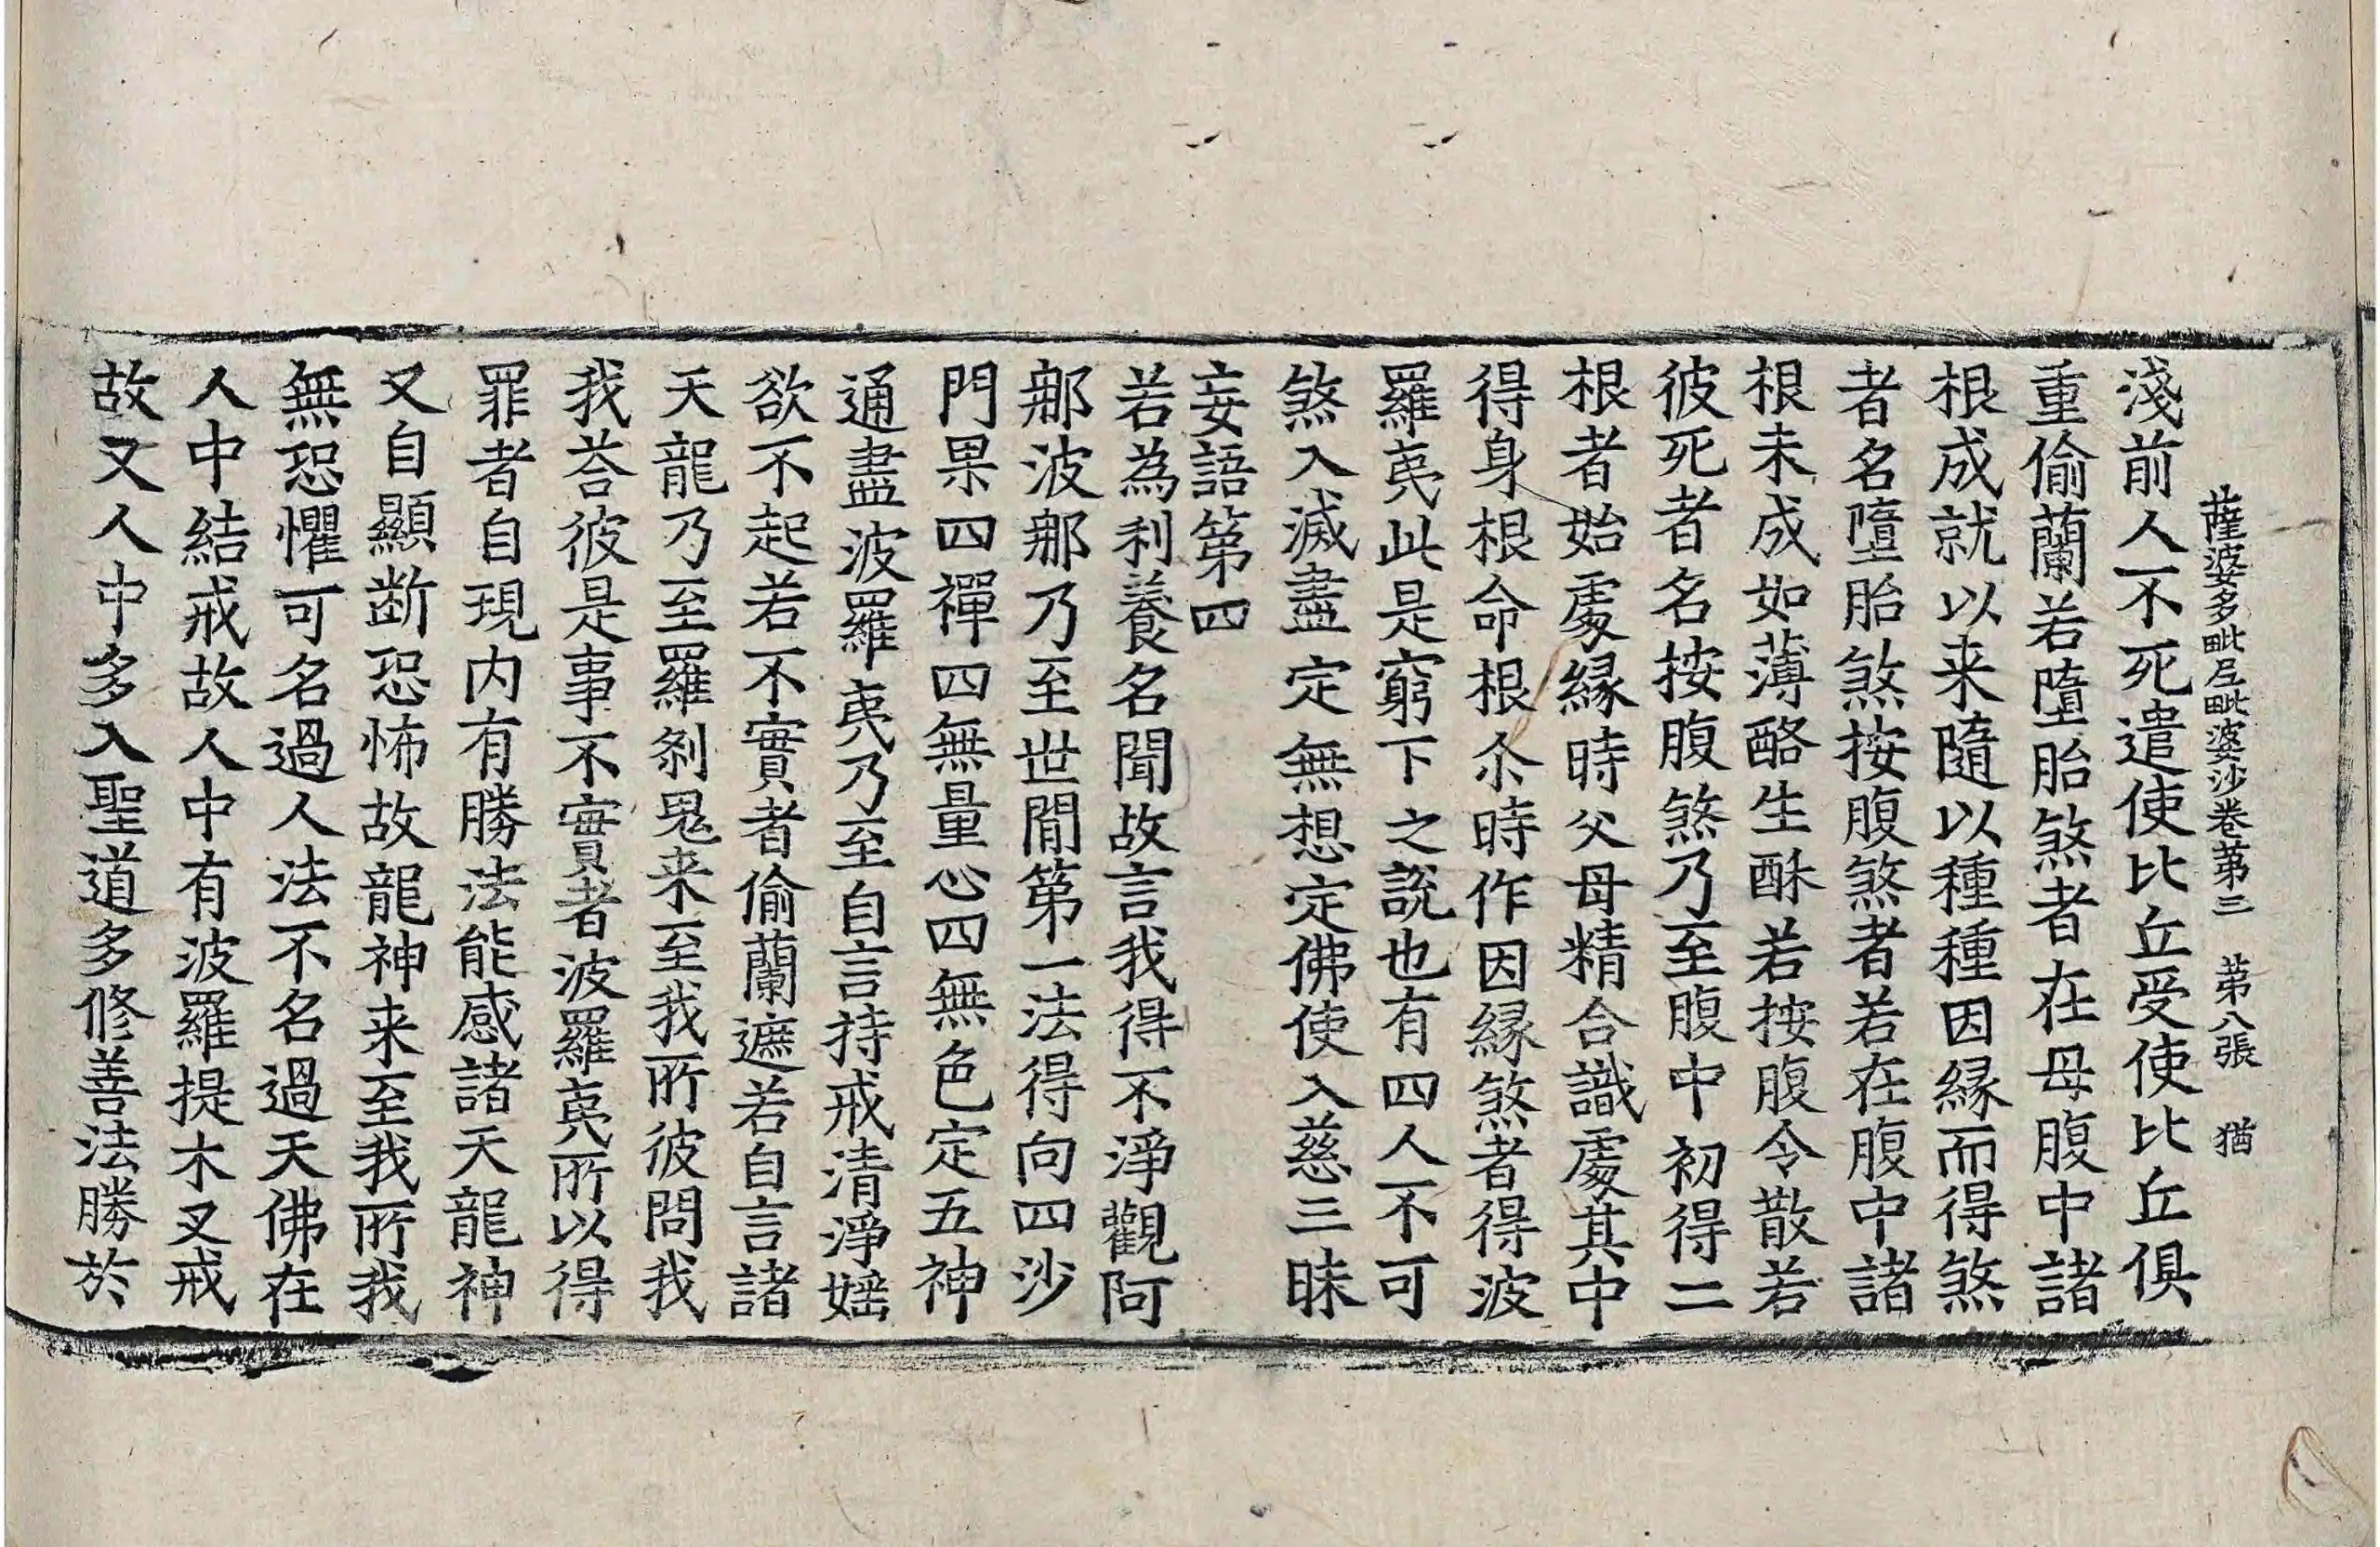 薩波多毗尼毗婆沙卷苐三　苐八張　猶
淺前人不死遣使比丘受使比丘俱
重偷蘭若墮胎煞者在母腹中諸
根成就以来隨以種種因縁而得煞
者名墮胎煞按腹煞者若在腹中諸
根未成如薄酪生酥若按腹令散若
彼死者名按腹煞乃至腹中初得二
根者始處縁時父母精合識處其中
得身根命根尒時作因縁煞者得波
羅夷此是窮下之說也有四人不可
煞入滅盡定無想定佛使入慈三昧
妄語第四
若為利養名聞故言我得不淨觀阿
那波那乃至世間第一法得向四沙
門果四禪四無量心四無色定五神
通盡波羅夷乃至自言持戒清淨婬
欲不起若不實者偷蘭遮若自言諸
天龍乃至羅剎鬼来至我所彼問我
我荅彼是事不實者波羅夷所以得
罪者自現内有勝法能感諸天龍神
又自顯断恐怖故龍神来至我所我
無恐懼可名過人法不名過天佛在
人中結戒故人中有波羅提木叉戒
故又人中多入聖道多修善法勝於